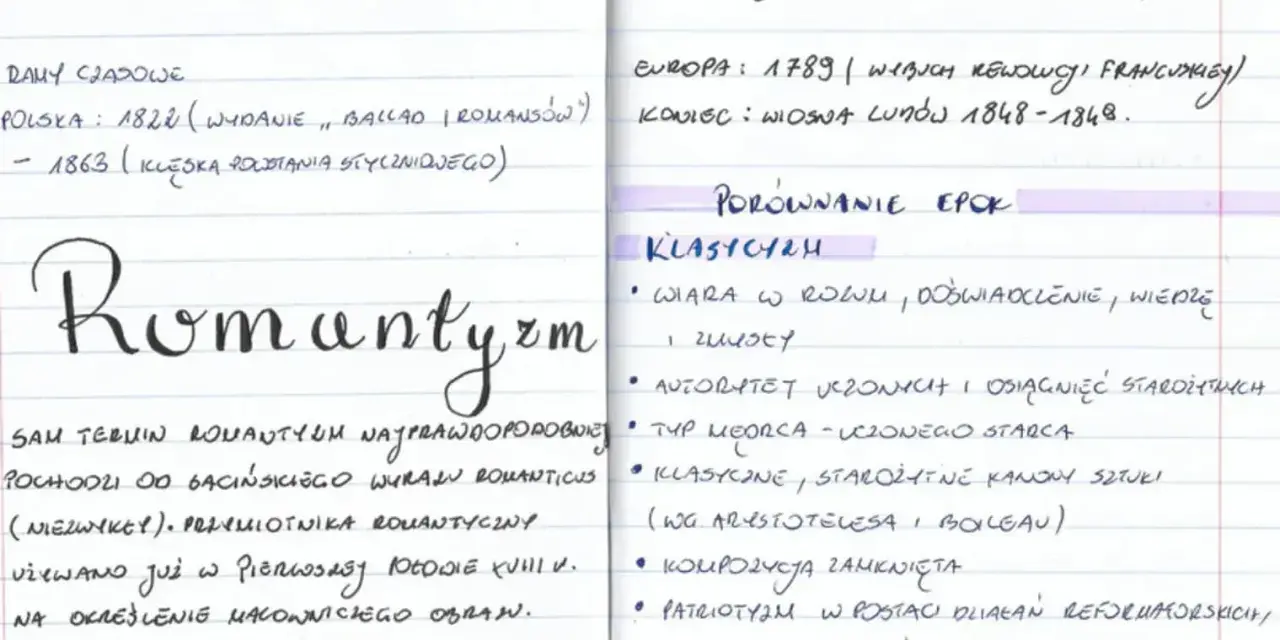 RAMY CZASOWE
POLSKA : 1822 ( WYDANIE „ BALLAD I ROMANSÓW")
– 1863 ( KLĘSKA POWSTANIA STYCZNIOWEGO)
Romantyzm
SAM TERMIN ROMANTYZM NAJPRAWDOPODOBNIEJ
POCHODZI OD ŁACIŃSKIEGO WYRAZU ROMANTICUS
( NIEZWYKŁY). PRZYMIOTNIKA ROMANTYCZNY
UŻYWANO JUŻ W PIERWSZEJ POŁOWIE XVIII W.
NA OKREŚLENIE MALOWNICZEGO OBRAZU.
EUROPA : 1789 ( WYBUCH REWOLUCJI FRANCUSKIEJ)
KONIEC : WIOSNA LUDÓW 1848 - 1848.
PORÓWNANIE EPOK
KLASYCYZM
• WIARA W ROZUM , DOŚWIADCZENIE, WIEDZĘ
I ZMYSŁY
• AUTORYTET UCZONYCH I OSIĄGNIĘĆ STAROŻYTNYCH
• TYP MĘDRCA - UCZONEGO STARCA
• KLASYCZNE, STAROŻYTNE KANONY SZTUKI
(WG ARYSTOTELESA I BOILEAU)
• KOMPOZYCJA ZAMKNIĘTA
• PATRIOTYZM W POSTACI DZIAŁAŃ REFORMATORSKICH,